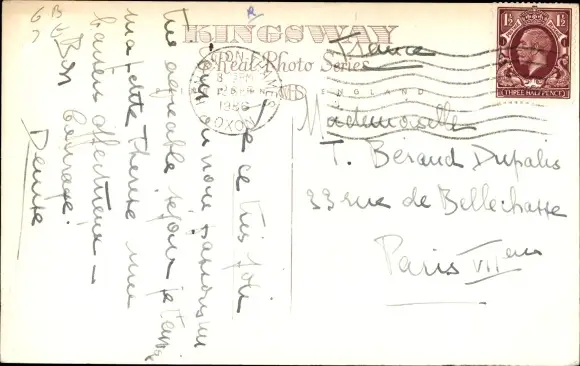 KINGSWAY
Real Photo Series
ENGLAND
HENLEY-ON-THAMES
OXON
1936
THREE HALFPENCE
1½ 1½
France
Mademoiselle
T. Beraud Dupalis
33 rue de Bellechasse
Paris VII em
De ce très joli
où nous passons un
très agréable séjour je t'envoie
ma petite Thérèse mes
baisers affectueux –
Bon Courage.
Denise